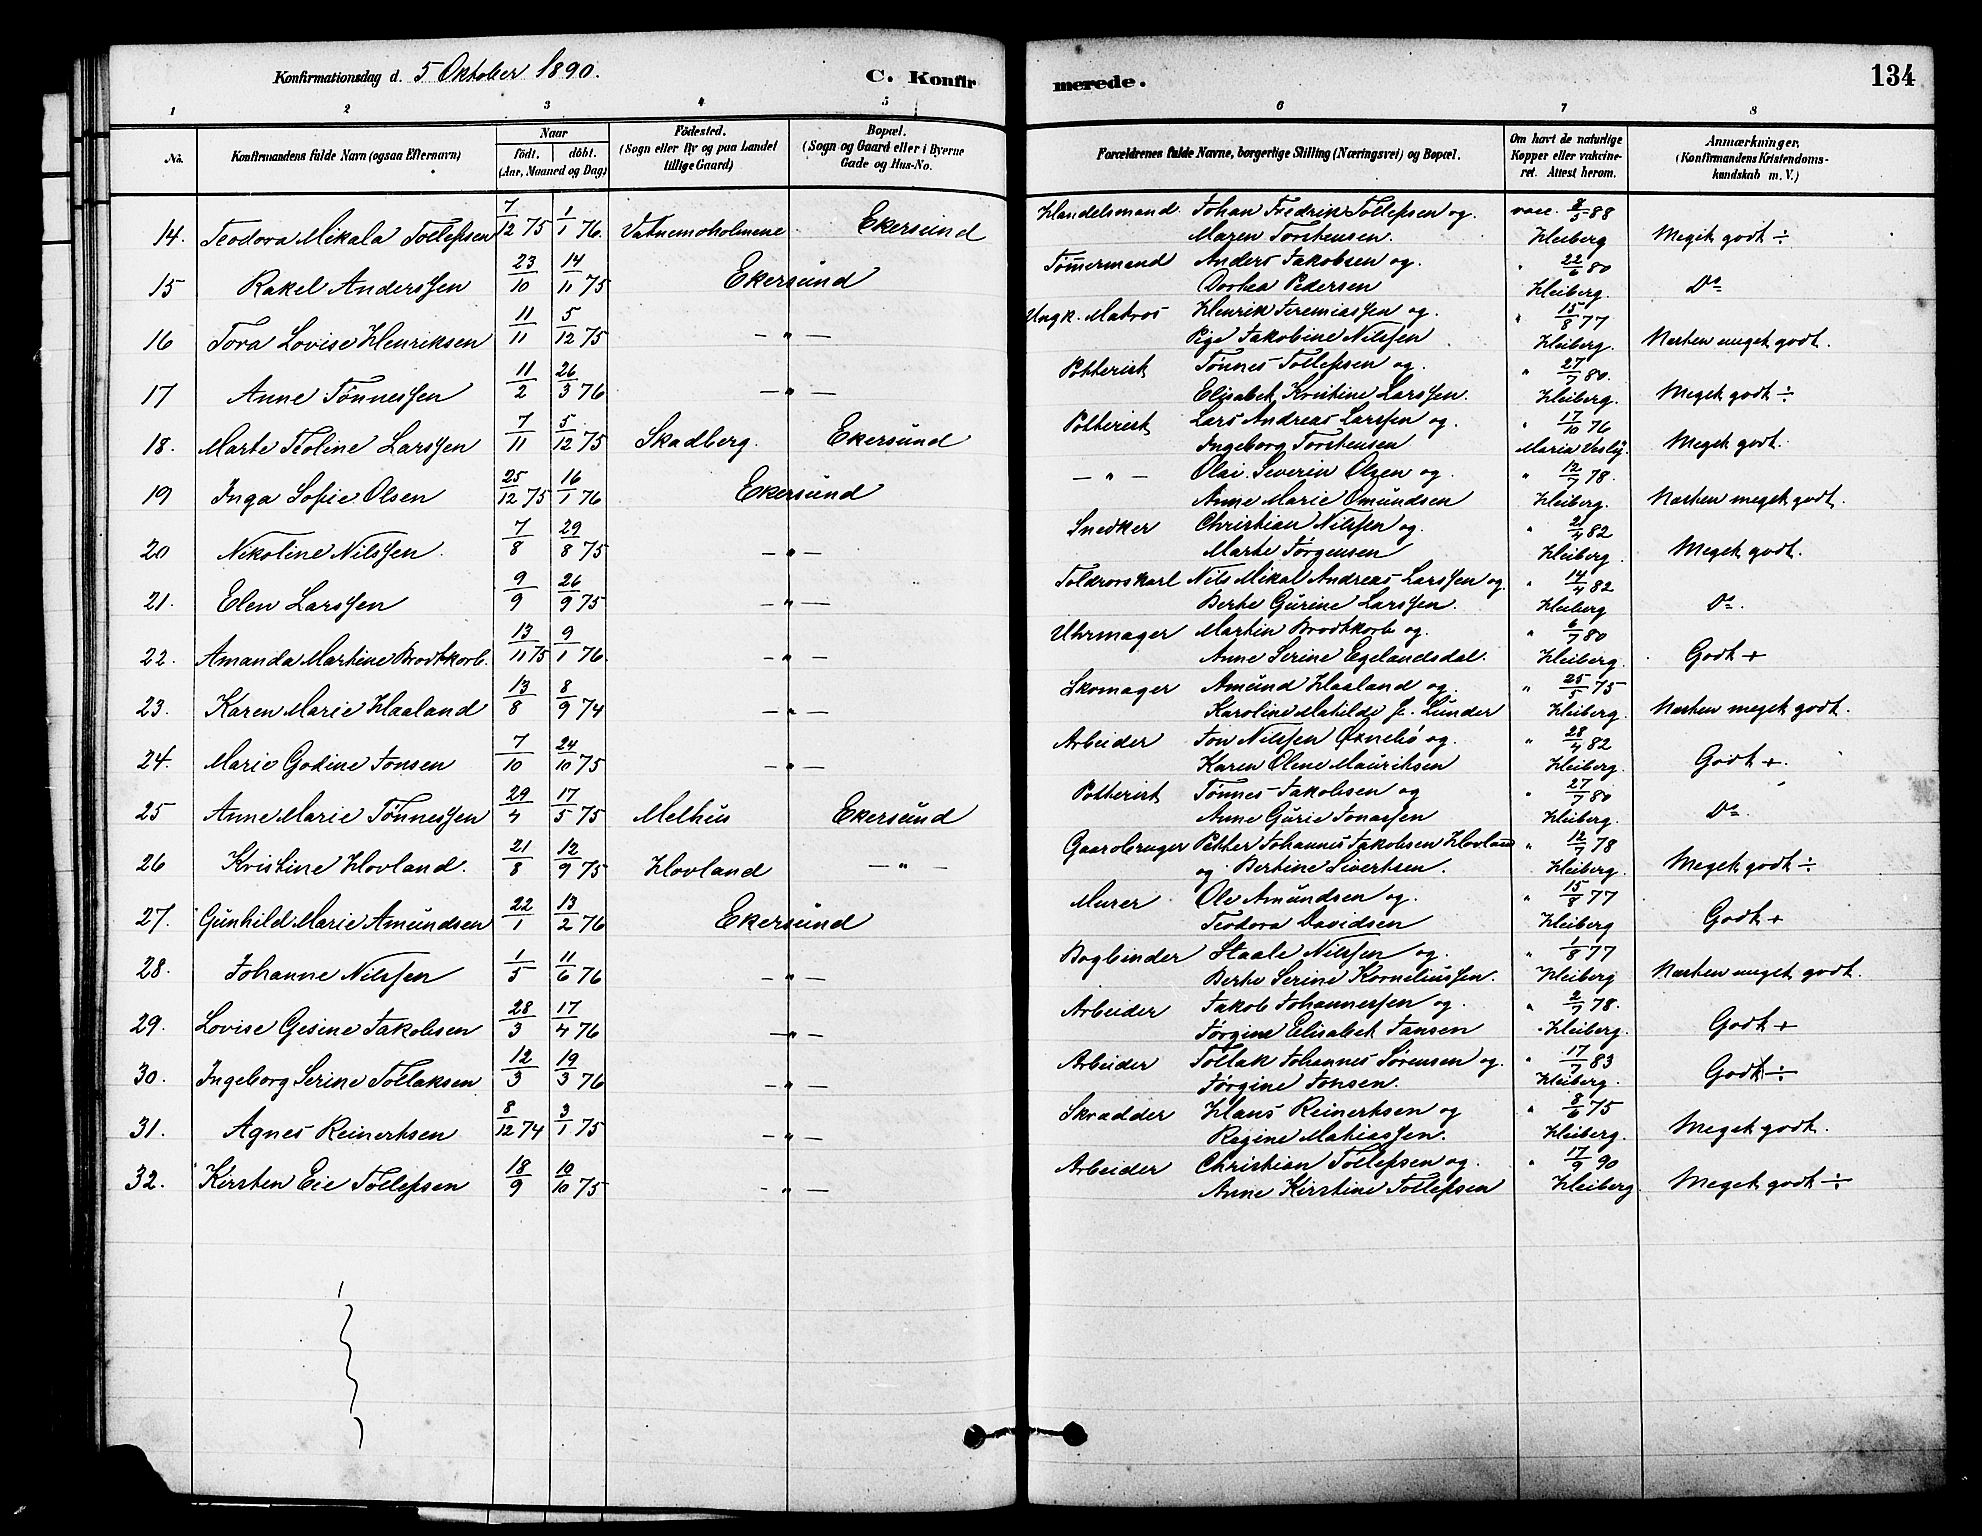 Konfirmationsdag d. 5 Oktober 1890. C. Konfirmerede. 134
1 2 3 4 5 6 7 8
No. Konfirmandens fulde Navn (ogsaa Efternavn) Naar födt. döbt. (Aar, Maaned og Dag) Födested. (Sogn eller By og paa Landet tillige Gaard) Bopæl. (Sogn og Gaard eller i Byerne Gade og Hus-No. Forældrenes fulde Navne, borgerlige Stilling (Næringsvei) og Bopæl. Om havt de naturlige Kopper eller vakcineret. Attest herom. Anmærkninger. (Konfirmandens Kristendomskundskab m. V.)
14. Teodora Mikala Tollefsen 7/12 75 1/1 76. Vatnemoholmene Ekersund Handelsmand Johan Fredrik Tollefsen og vacc. 8/5 88
Maren Torstensen. Kleiberg Meget godt ÷
15 Rakel Anderssen 23/10 14/11 75 Ekersund Tømermand Anders Jakobsen og " 22/6 80
Dorhea Pedersen Kleiberg. Do
16 Tora Lovise Henriksen 11/11 5/12 75 — " — Ungk. Matros Henrik Jeremiassen og " 15/8 77
Pige Jakobine Nilssen Kleiberg. Næsten meget godt.
17 Anne Tønnessen 11/2 26/3 76 — " — Potterist Tønnes Tollefsen og " 27/7 80.
Elisabet Kristine Larssen. Kleiberg. Meget godt ÷
18. Marte Teoline Larssen 7/11 5/12 75 Skadberg. Ekersund Potterist Lars Andreas Larssen og " 17/10 76
Ingeborg Torstensen Maria Vesly. Meget godt.
19 Inga Sofie Olsen 25/12 75 16/1 76 Ekersund — " — Olai Severin Olsen og " 12/7 78.
Anne Marie Omundsen Kleiberg. Næsten meget godt.
20 Nikoline Nilssen. 7/8 29/8 75 — " — Snedker Christian Nilssen og " 21/4 82
Marte Jørgensen Kleiberg. Meget godt.
21. Elen Larssen 9/9 26/9 75 — " — Toldrorskarl Nils Mikal Andreas Larssen og " 14/4 82
Berte Gurine Larssen. Kleiberg Do.
22. Amanda Martine Brodtkorb. 13/11 75 9/1 76. — " — Uhrmager Martin Brodtkorb og " 6/7 80
Anne Serine Egelandsdal. Kleiberg. Godt +
23. Karen Marie Haaland 13/8 8/9 74 — " — Skomager Amund Haaland og " 25/5 75
Karoline Matilde f. Lunder Kleiberg. Næsten meget godt.
24. Marie Godine Jonsen 7/10 24/10 75 — " — Arbeider Jon Nilssen og " 28/4 82
Karen Oline Mauritsen Kleiberg. Godt +.
25 Anne Marie Tønnessen 29/4 17/5 75 Melhus Ekersund Potterist Tønnes Jakobsen og " 27/7 80
Anne Gurie Jonassen Kleiberg. Do.
26 Kristine Hovland. 21/8 12/9 75 Hovland — " — Gaardbruger Petter Johannes Jakobsen Hovland " 12/7 78
og Bertine Sivertsen. Kleiberg. Meget godt ÷
27. Gunhild Marie Amundsen 22/1 13/2 76 Ekersund Murer Ole Amundsen og " 15/8 77
Teodora Davidsen Kleiberg Godt +
28. Johanne Nilssen 1/5 11/6 76 — " — Bogbinder Staale Nilssen og " 1/8 77
Berte Serine Korneliussen. Kleiberg Næsten meget godt.
29. Lovise Gesine Jakobsen 28/3 17/4 76 — " — Arbeider Jakob Johannessen og " 2/7 78.
Jørgine Elisabet Jansen Kleiberg. Godt +
30. Ingeborg Serine Tollaksen 12/3 19/3 76 — " — Arbeider Tollak Johannes Sørensen og " 17/7 83
Jørgine Jonsen. Kleiberg. Godt ÷
31. Agnes Reinertsen 8/12 74 3/1 75 — " — Skrædder Hans Reinertsen og " 8/6 75
Regine Mathiassen. Kleiberg. Meget godt.
32. Kirsten Eie Tollefsen 18/9 10/10 75 — " — Arbeider Christian Tollefsen og " 17/9 90
Anne Kirstine Tollefsen Kleiberg Meget godt ÷